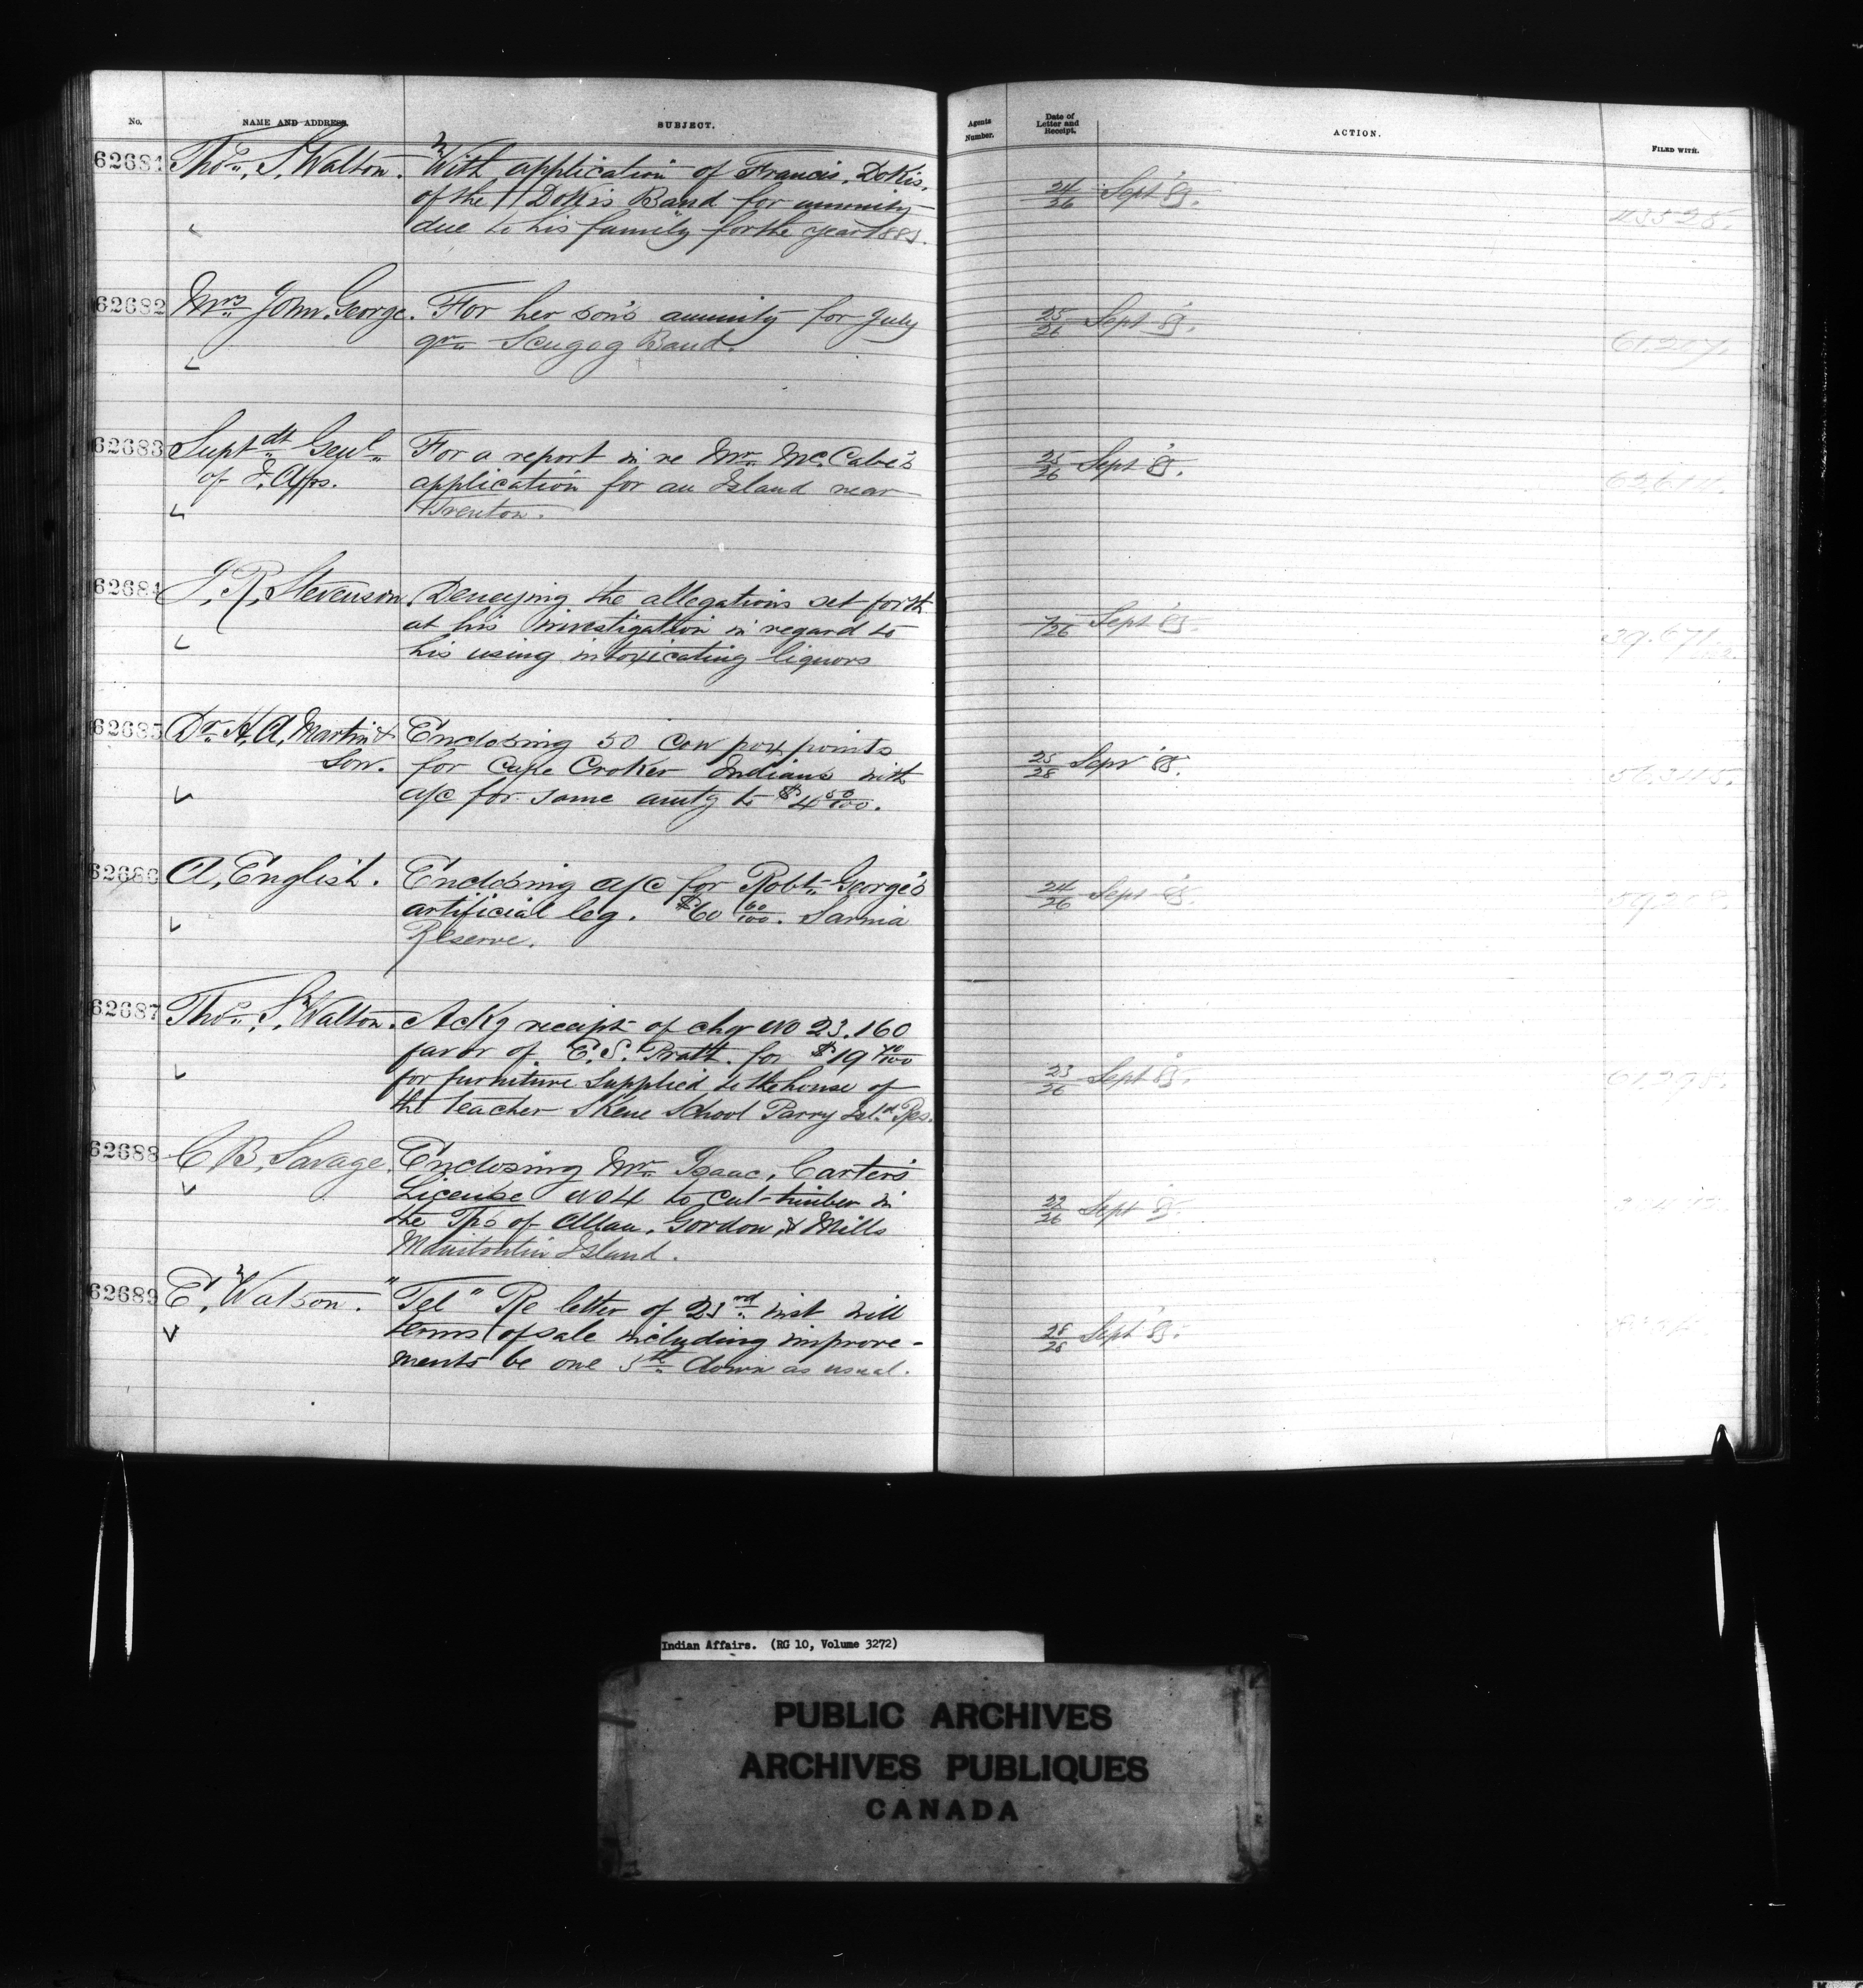 No. NAME AND ADDRESS. SUBJECT. Agents Number. Date of Letter and Receipt. ACTION. FILED WITH.
62681 Thos. S. Walton. With application of Francis, Dokis,
of the Dokis Band for annuity
due to his family for the year 1885.
24/26 Sept '85.
62682 Mrs John George. For her son's annuity for July
qr. Scugog Band.
25/26 Sept '85.
61,207.
62683 Suptdt Genl For a report in re Mr. McCabe's
of I. Affrs. application for an Island near
Trenton.
25/26 Sept '85.
62684 J. R. Stevenson. Denying the allegations set forth
at his investigation in regard to
his using intoxicating liquors
7/26 Sept '85.
62685 Dr. H. A. Martin & Enclosing 50 Cow pox points
Son. for Cape Croker Indians with
a/c for same amtg to $4 50/100.
25/28 Sept '85.
62686 A. English. Enclosing a/c for Robt. George's
artificial leg. $60 60/100. Sarnia
Reserve.
24/26 Sept '85.
59,208.
62687 Thos. S. Walton. Ackg receipt of chqr No 23.160
favor of E. S. Pratt. for $19 70/100
for furniture supplied to the house of
the teacher Skene School Parry Isld. Res.
23/26 Sept '85.
62688 C. B. Savage. Enclosing Mr. Isaac, Carter's
License No 4 to cut timber in
the Tps of Allan, Gordon, & Mills
Manitoulin Island.
22/26 Sept '85.
62689 E. Watson. "Tel" Re letter of 23rd. inst will
terms of sale including improve-
ments be one 5th down as usual.
28/28 Sept '85.
Indian Affairs. (RG 10, Volume 3272)
PUBLIC ARCHIVES
ARCHIVES PUBLIQUES
CANADA